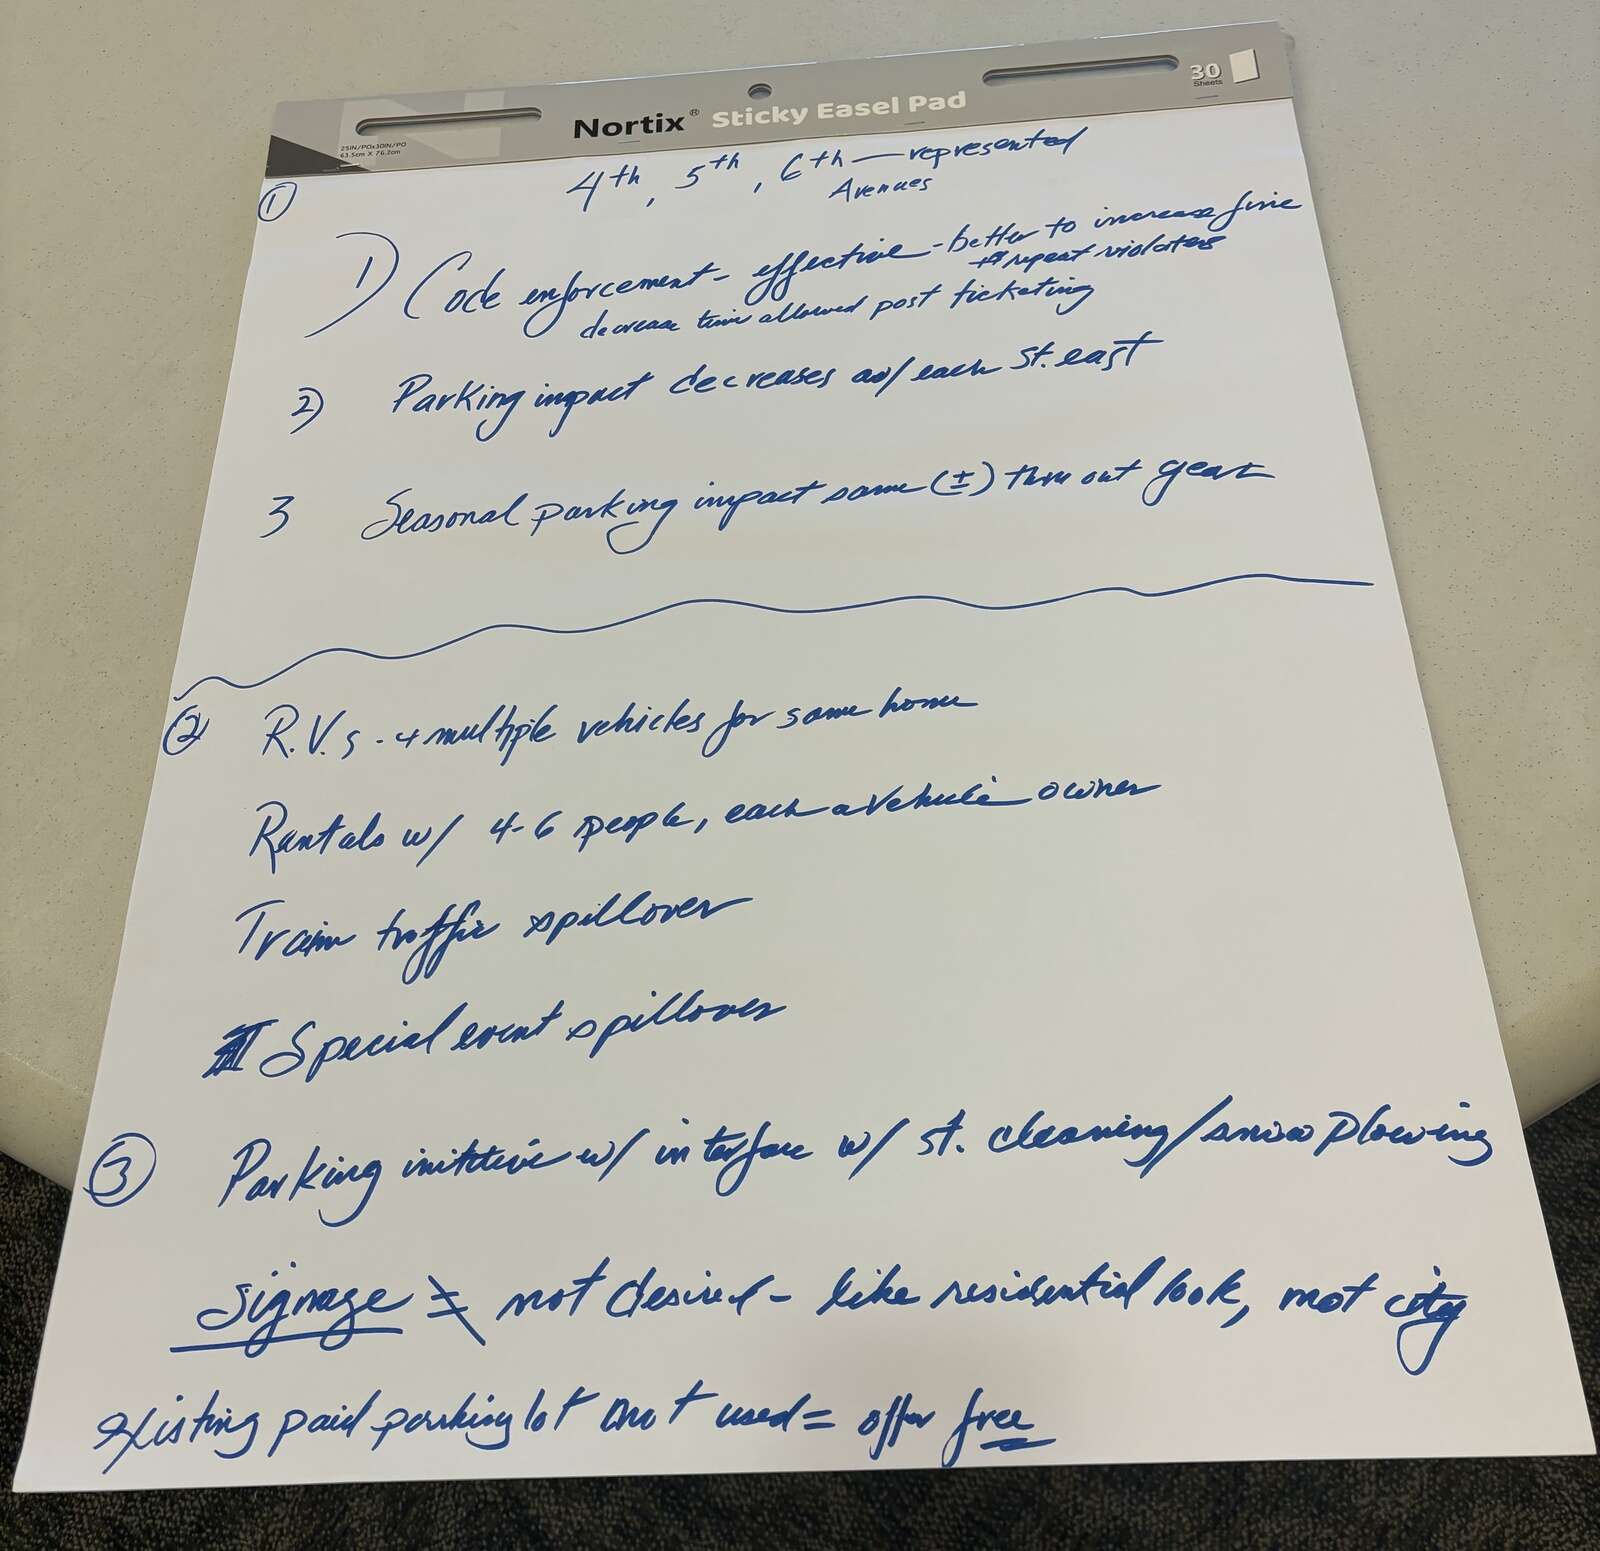 25IN/POx30IN/PO
63.5cm X 76.2cm
Nortix® Sticky Easel Pad
30
Sheets
① 4th, 5th, 6th — represented
Avenues
1) Code enforcement - effective - better to increase fine
repeat violators
decrease time allowed post ticketing
2) Parking impact decreases w/ each St. east
3 Seasonal parking impact same (±) thru out year
② R.V.s - + multiple vehicles for same home
Rentals w/ 4-6 people, each a vehicle owner
Train traffic spillover
Special event spillover
③ Parking initiative w/ interface w/ st. cleaning/snow plowing
Signage = not desired - like residential look, not city
Existing paid parking lot not used = offer free